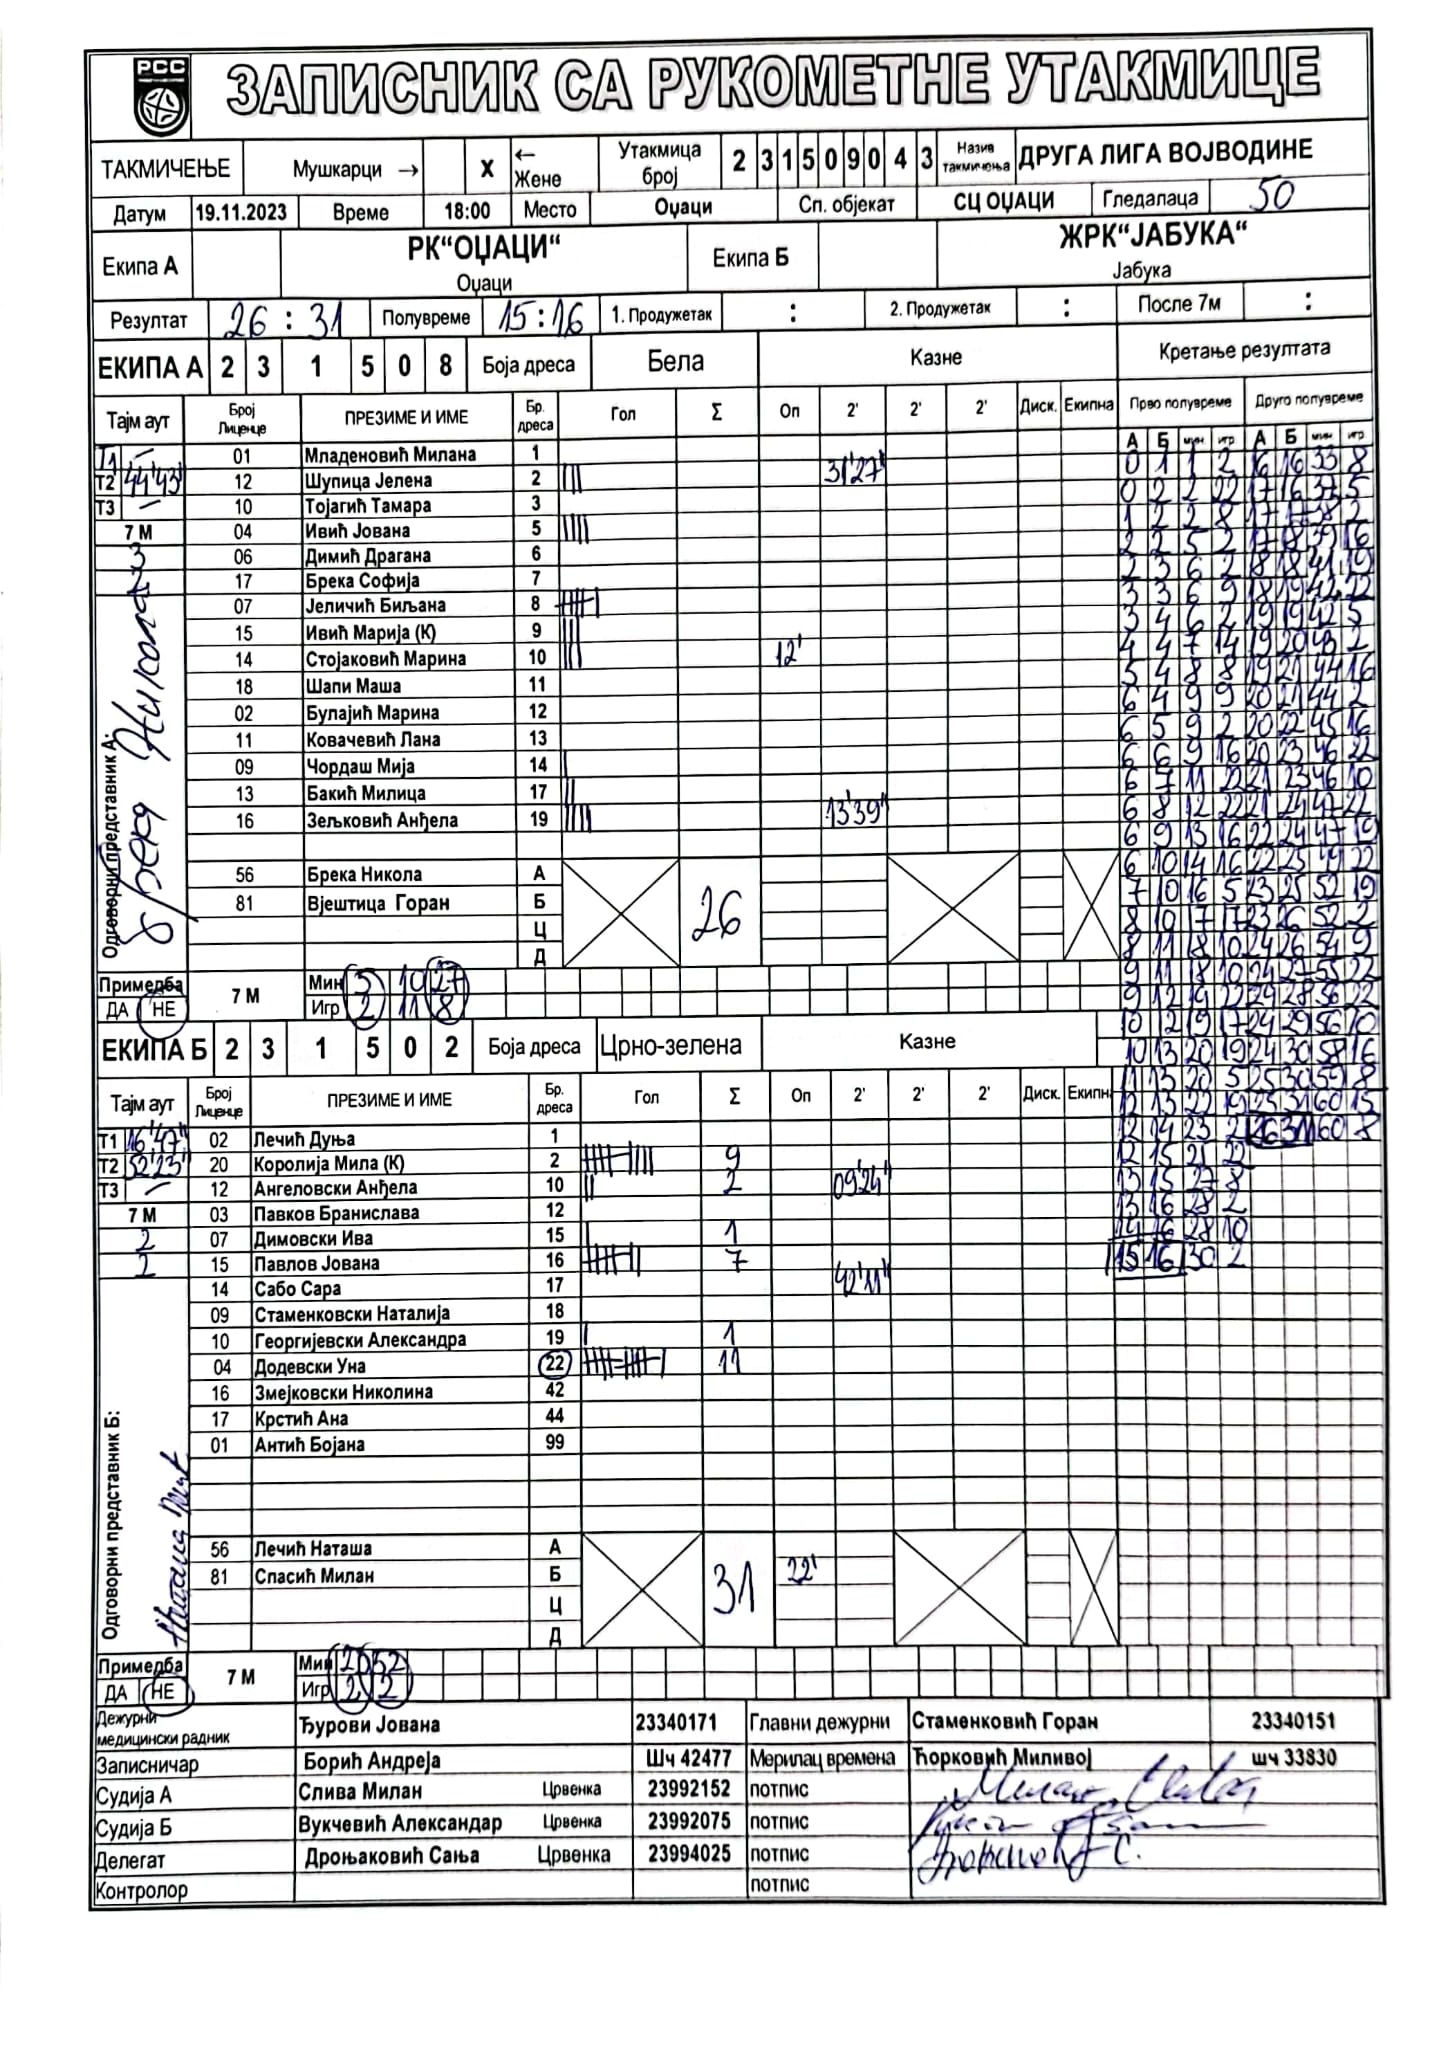 РСС
ЗАПИСНИК СА РУКОМЕТНЕ УТАКМИЦЕ
ТАКМИЧЕЊЕ Мушкарци → X ← Жене Утакмица број 2 3 1 5 0 9 0 4 3 Назив такмичења ДРУГА ЛИГА ВОЈВОДИНЕ
Датум 19.11.2023 Време 18:00 Место Оџаци Сп. објекат СЦ ОЏАЦИ Гледалаца 50
Екипа А РК“ОЏАЦИ“ Оџаци Екипа Б ЖРК“ЈАБУКА“ Јабука
Резултат 26 : 31 Полувреме 15:16 1. Продужетак : 2. Продужетак : После 7м :
ЕКИПА А 2 3 1 5 0 8 Боја дреса Бела Казне Кретање резултата
Тајм аут Број Лиценце ПРЕЗИМЕ И ИМЕ Бр. дреса Гол Σ Оп 2' 2' 2' Диск. Екипна Прво полувреме Друго полувреме
А Б мин игр А Б мин игр
T1 – 01 Младеновић Милана 1
T2 44'43" 12 Шупица Јелена 2 31'27"
T3 – 10 Тојагић Тамара 3
7 М 04 Ивић Јована 5
3 06 Димић Драгана 6
2 17 Брека Софија 7
07 Јеличић Биљана 8
15 Ивић Марија (К) 9
14 Стојаковић Марина 10 12'
18 Шапи Маша 11
02 Булајић Марина 12
11 Ковачевић Лана 13
09 Чордаш Мија 14
13 Бакић Милица 17
16 Зељковић Анђела 19 13'39"
Одговорни представник А: Брека Никола
56 Брека Никола А
81 Вјештица Горан Б
Ц
Д
26
Примедба ДА НЕ 7 М Мин 5 10 27
Игр 2 11 8
ЕКИПА Б 2 3 1 5 0 2 Боја дреса Црно-зелена Казне
Тајм аут Број Лиценце ПРЕЗИМЕ И ИМЕ Бр. дреса Гол Σ Оп 2' 2' 2' Диск. Екипна
T1 16'47" 02 Лечић Дуња 1
T2 52'23" 20 Королија Мила (К) 2 9
T3 – 12 Ангеловски Анђела 10 2 09'24"
7 М 03 Павков Бранислава 12
2 07 Димовски Ива 15 1
2 15 Павлов Јована 16 7
14 Сабо Сара 17 42'11"
09 Стаменковски Наталија 18
10 Георгијевски Александра 19 1
04 Додевски Уна 22 11
16 Змејковски Николина 42
17 Крстић Ана 44
01 Антић Бојана 99
Одговорни представник Б:
56 Лечић Наташа А
81 Спасић Милан Б 22'
Ц
Д
31
Примедба ДА НЕ 7 М Мин 21 52
Игр 2 2
0 1 1 2 16 16 33 8
0 2 2 22 17 16 37 5
1 2 2 8 17 17 38 2
2 2 5 2 17 18 39 16
2 3 6 2 18 18 41 19
3 3 6 9 18 19 42 22
3 4 6 2 19 19 42 5
4 4 7 14 19 20 43 2
5 4 8 8 19 21 44 16
6 4 9 9 20 21 44 2
6 5 9 2 20 22 45 16
6 6 9 16 20 23 46 22
6 7 11 22 21 23 46 10
6 8 12 22 21 24 47 22
6 9 13 16 22 24 47 19
6 10 14 16 22 25 49 22
7 10 16 5 23 25 52 19
8 10 17 17 23 26 52 2
8 11 18 10 24 26 54 9
9 11 18 10 24 27 55 22
9 12 19 22 24 28 56 22
10 12 19 17 24 29 56 10
10 13 20 19 24 30 58 16
11 13 20 5 25 30 59 8
12 13 22 19 25 31 60 15
12 14 23 2 26 31 60 8
12 15 21 22
13 15 27 8
13 16 28 2
14 16 28 10
15 16 30 2
Дежурни медицински радник Ђурови Јована 23340171 Главни дежурни Стаменковић Горан 23340151
Записничар Борић Андреја Шч 42477 Мерилац времена Ћорковић Миливој шч 33830
Судија А Слива Милан Црвенка 23992152 потпис
Судија Б Вукчевић Александар Црвенка 23992075 потпис
Делегат Дроњаковић Сања Црвенка 23994025 потпис
Контролор потпис